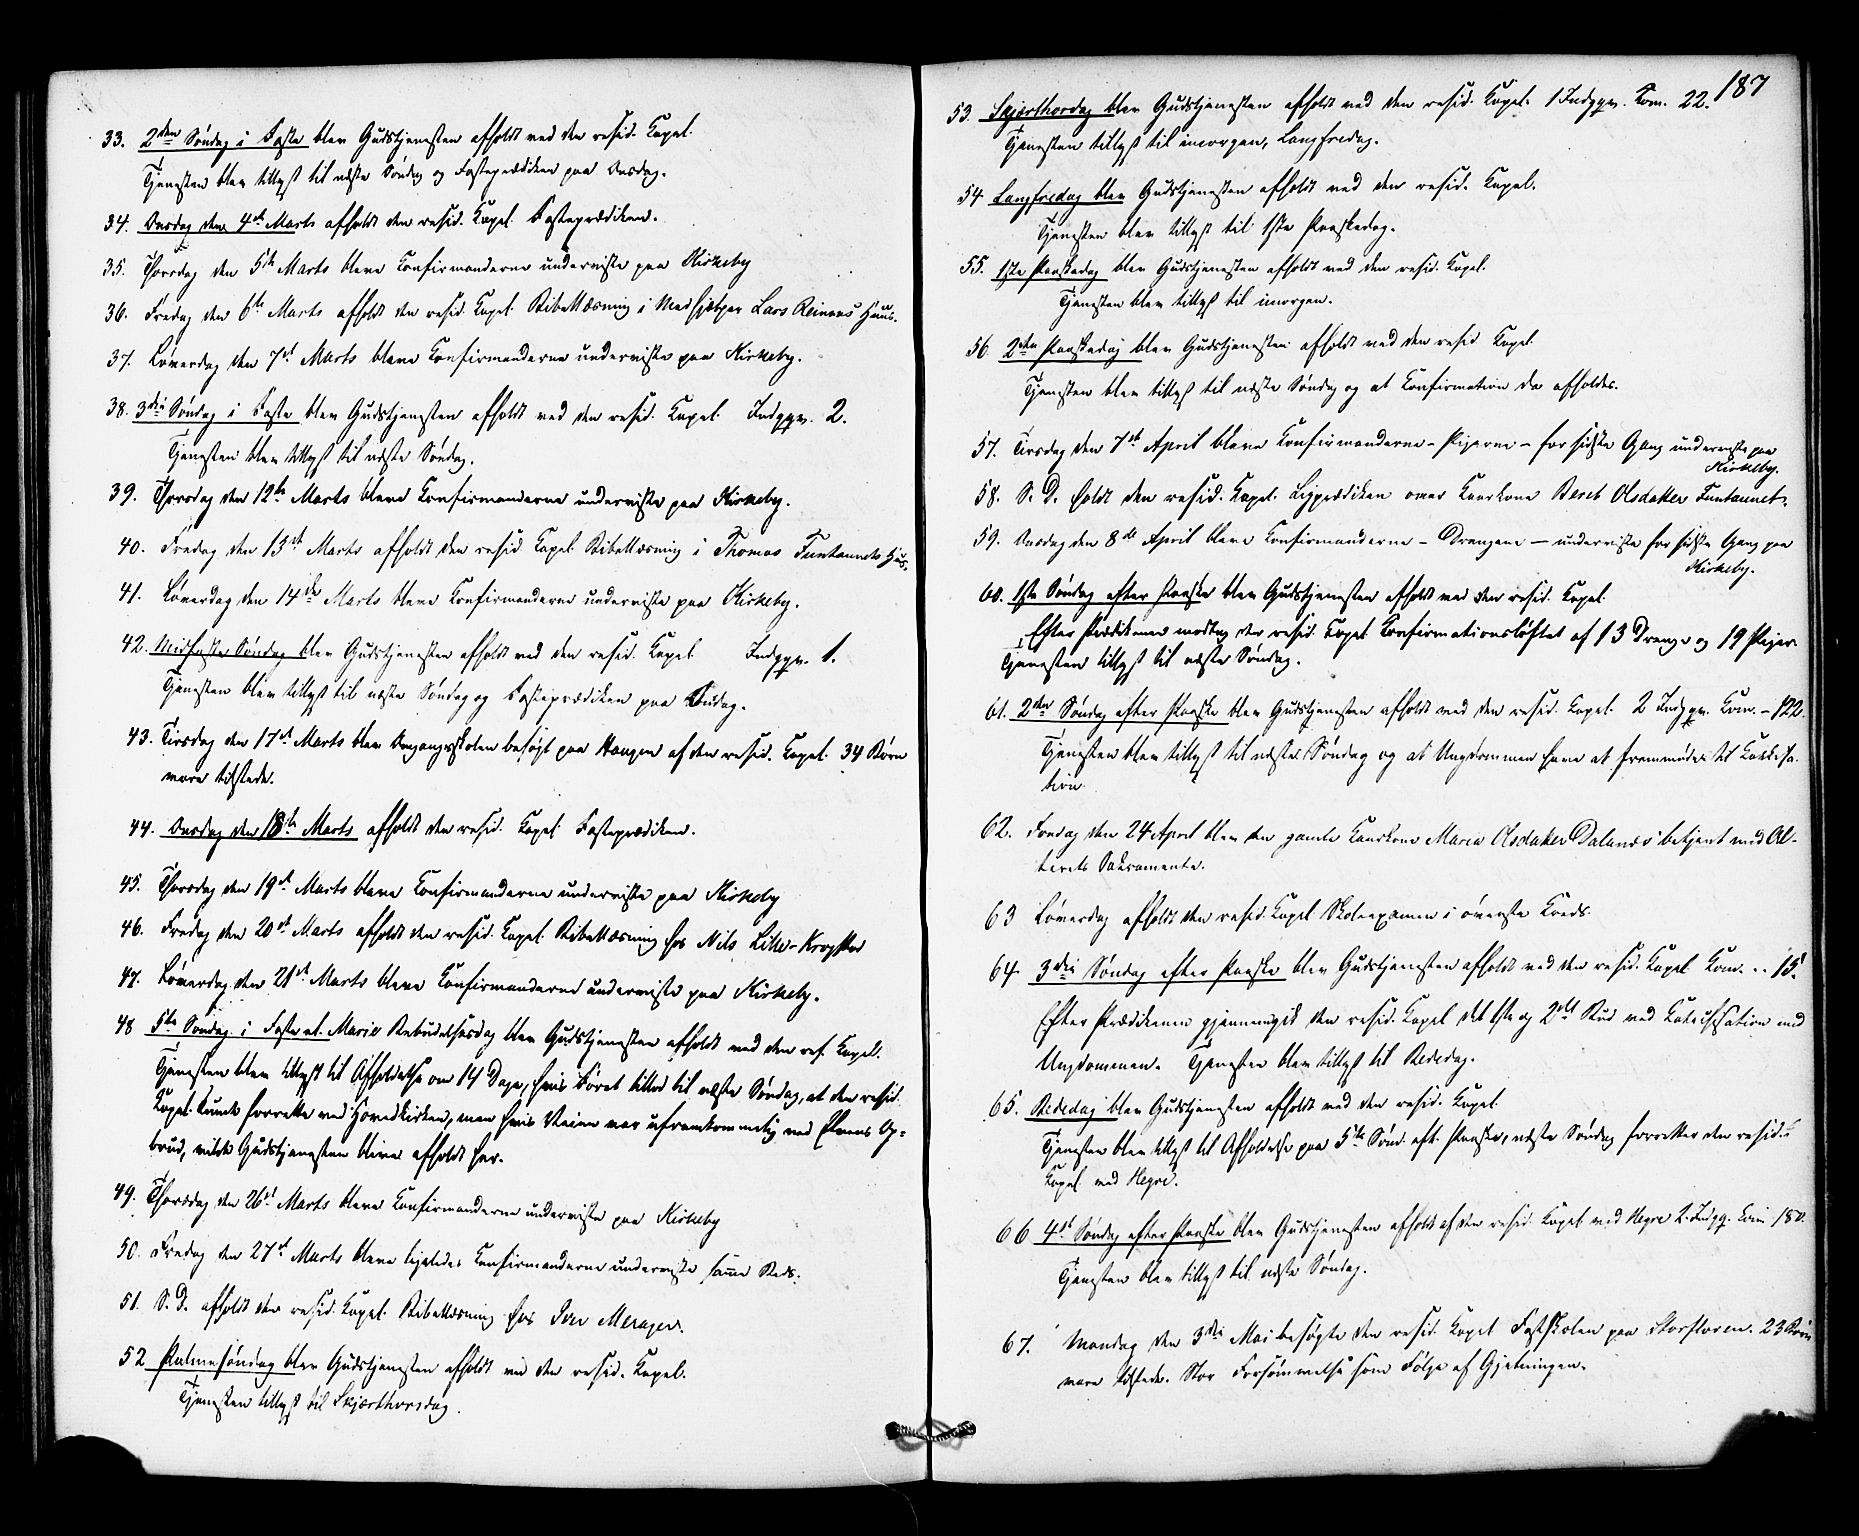 33. 2den Søndag i Faste blev Gudstjenesten afholdt ved den resid. Kapel.
Tjenesten blev tillyst til næste Søndag og Fasteprædiken paa Onsdag.
34. Onsdag den 4de Marts afholdt den resid. Kapel. Fasteprædiken.
35. Thorsdag den 5te Marts bleve Confirmanderne underviste paa Kirkeby
36. Fredag den 6te Marts afholdt den resid. Kapel. Bibellæsning i Medhjælper Lars Reinaas Huus.
37. Løverdag den 7de Marts bleve Confirmanderne underviste paa Kirkeby.
38. 3die Søndag i Faste blev Gudstjenesten afholdt ved den resid. Kapel. Indggv. 2.
Tjenesten blev tillyst til næste Søndag.
39. Thorsdag den 12te Marts bleve Confirmanderne underviste paa Kirkeby.
40. Fredag den 13de Marts afholdt den resid. Kapel. Bibellæsning i Thomas Funtaunets Huus.
41. Løverdag den 14de Marts bleve Confirmanderne underviste paa Kirkeby.
42. Midfaste Søndag blev Gudstjenesten afholdt ved den resid. Kapel. Indggv. 1.
Tjenesten blev tillyst til næste Søndag og Fasteprædiken paa Onsdag.
43. Tirsdag den 17de Marts blev Omgangsskolen besøgt paa Haugen af den resid. Kapel. 34 Børn
vare tilstede.
44. Onsdag den 18de Marts afholdt den resid. Kapel. Fasteprædiken.
45. Thorsdag den 19de Marts bleve Confirmanderne underviste paa Kirkeby
46. Fredag den 20de Marts afholdt den resid. Kapel. Bibellæsning hos Nils Lille-Krogstad
47. Løverdag den 21de Marts bleve Confirmanderne underviste paa Kirkeby.
48 5te Søndag i Faste el. Marie Bebudelsesdag blev Gudstjenesten afholdt ved den res. Kapel.
Tjenesten blev tillyst til Afholdelse om 14 Dage, hvis Føret tillod til næste Søndag, at den resid.
Kapel. kunde forrette ved Hovedkirken, men hvis Veien var ufremkommelig ved Elvens Op=
brud, vilde Gudstjenesten blive afholdt her.
49. Thorsdag den 26de Marts bleve Confirmanderne underviste paa Kirkeby
50. Fredag den 27de Marts bleve ligeledes Confirmanderne underviste samme Steds.
51. S. D. afholdt den resid. Kapel. Bibellæsning hos Iver Merager.
52 Palmesøndag blev Gudstjenesten afholdt ved den resid. Kapel.
Tjenesten tillyst til Skjærthorsdag.
187
53. Skjærthorsdag blev Gudstjenesten afholdt ved den resid. Kapel. 1 Indggv. Kom. 22.
Tjenesten tillyst til imorgen, Langfredag.
54 Langfredag blev Gudstjenesten afholdt ved den resid. Kapel.
Tjenesten blev tillyst til 1ste Paaskedag.
55. 1ste Paaskedag blev Gudstjenesten afholdt ved den resid. Kapel.
Tjenesten blev tillyst til imorgen.
56. 2den Paaskedag blev Gudstjenesten afholdt ved den resid Kapel.
Tjenesten blev tillyst til næste Søndag og at Confirmation da afholdes.
57. Tirsdag den 7de April bleve Confirmanderne - Pigerne - for sidste Gang underviste paa
Kirkeby.
58. S. D. holdt den resid. Kapel. Ligprædiken over Kaarkone Beret Olsdatter Funtaunet.
59. Onsdag den 8de April bleve Confirmanderne - Drengene - underviste for sidste Gang paa
Kirkeby.
60. 1ste Søndag efter Paaske blev Gudstjenesten afholdt ved den resid. Kapel.
Efter Prædikenen modtog den resid. Kapel Confirmationsløftet af 13 Drenge og 19 Piger.
Tjenesten tillyst til næste Søndag.
61. 2den Søndag efter Paaske blev Gudstjenesten afholdt ved den resid. Kapel. 2 Indggv. Kom. - 122.
Tjenesten blev tillyst til næste Søndag og at Ungdommen have at fremmøde til Katekisa-
tion.
62. Fredag den 24 April blev den gamle Kaarkone Maren Olsdatter Dalanæs betjent med Al-
terets Sakramente.
63 Løverdag afholdt den resid. Kapel Skoleexamen i øverste Kreds.
64. 3die Søndag efter Paaske blev Gudstjenesten afholdt ved den resid. Kapel Kom. .. 15.
Efter Prædikenen gjennemgik den resid. Kapel det 1ste og 2det Bud ved Katekisation med
Ungdommen. Tjenesten blev tillyst til Bededag.
65. Bededag blev Gudstjenesten afholdt ved den resid. Kapel.
Tjenesten blev tillyst til Afholdelse paa 5te Sønd. eft. Paaske, næste Søndag forretter den resid.
Kapel. ved Hegre.
66 4de Søndag efter Paaske blev Gudstjenesten afholdt af den resid. Kapel ved Hegre 2. Indgg. Kom 180.
Tjenesten blev tillyst til næste Søndag.
67. Mandag den 3die Mai besøgte den resid. Kapel Fastskolen paa Storfloren. 23 Børn
vare tilstede. Stor Forsømmelse som Følge af Gjetningen.